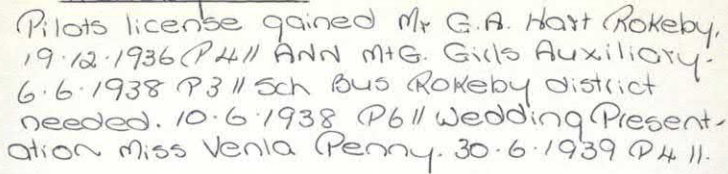 Pilots license gained Mr G.A. Hart Rokeby.
19.12.1936 P4 // ANN MtG. Girls Auxiliary.
6.6.1938 P3 // Sch Bus Rokeby district
needed. 10.6.1938 P6 // Wedding Present-
ation Miss Venla Penny. 30.6.1939 P4 //.